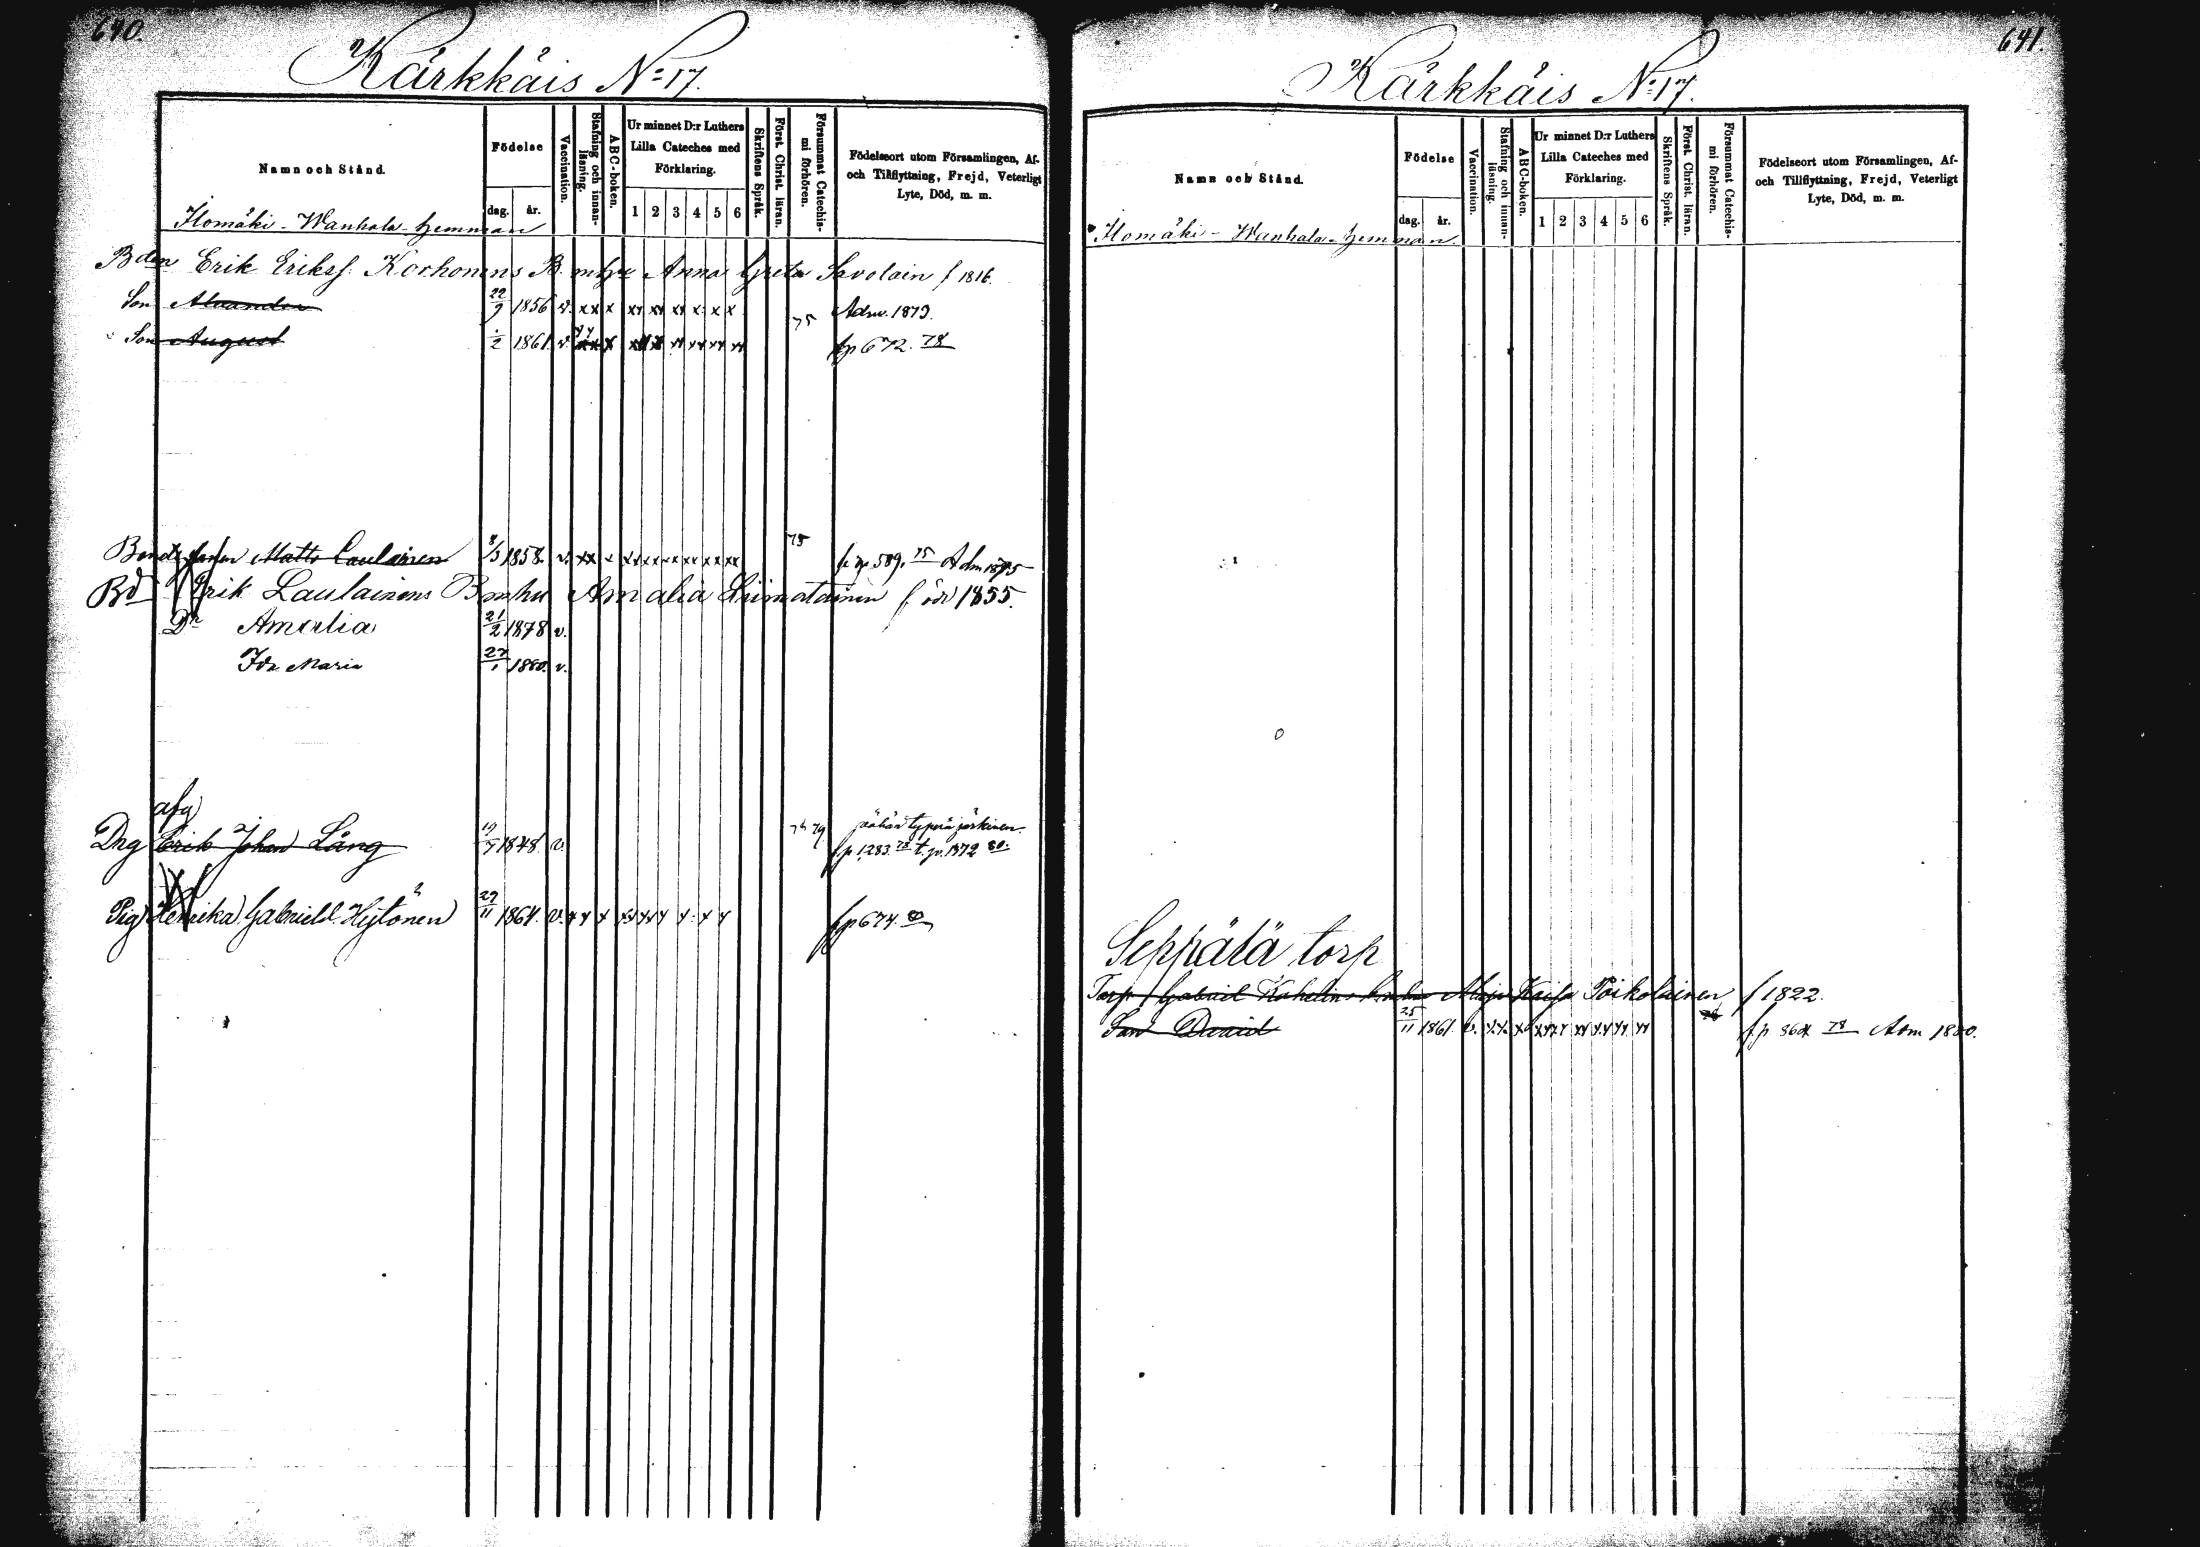 640.
Kärkkäis No 17.
Namn och Stånd.
Födelse
dag. år.
Vaccination.
Stafning och innan-
läsning.
ABC-boken.
Ur minnet D:r Luthers
Lilla Cateches med
Förklaring.
1 2 3 4 5 6
Skriftens Språk.
Först. Christ. läran.
Försummat Catechis-
mi förhören.
Födelseort utom Församlingen, Af-
och Tillflyttning, Frejd, Veterligt
Lyte, Död, m. m.
Ilomäki - Wanhala - hemman
Bden Erik Erikss. Korhonens B. mhu Anna Greta Savolain f 1816.
Son 22/9 1856 v. xx x xx xx xx x x x Adm. 1873.
Son August 2 1861. v. 75 fp 672. 78
Bonde Johan Matts Laulainen 8/3 1858. v. xx 75 fr p 589. 75 Adm 1875
Bd Erik Laulainens Bmhu Amalia Liimatainen född 1855.
Dr Amalia 21/2 1878 v.
Ida Maria 27/1 1880. v.
afg
Dng Erik Johan Lång 19 1848. v. 79
fp 1283. 78 t. 1872 80.
Pig Henrika Gabrielsd. Hytönen 27/11 1864. v. fp 674. 80
641.
Kärkkäis No 17.
Namn och Stånd.
Födelse
dag. år.
Vaccination.
Stafning och innan-
läsning.
ABC-boken.
Ur minnet D:r Luthers
Lilla Cateches med
Förklaring.
1 2 3 4 5 6
Skriftens Språk.
Först. Christ. läran.
Försummat Catechis-
mi förhören.
Födelseort utom Församlingen, Af-
och Tillflyttning, Frejd, Veterligt
Lyte, Död, m. m.
Ilomäki - Wanhala - hemman
Seppälä torp
Torp Gabriel Kahelins Maja Kaisa Poikolainen f 1822.
Son David 25/11 1861. v. fp 364 78 Adm 1880.